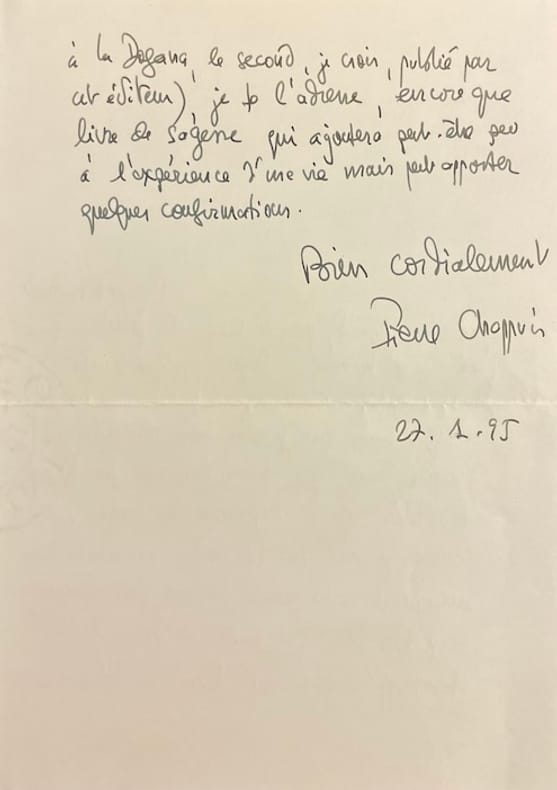 à la Dogana, le second, je crois, publié par
cet éditeur), je l'adresse, encore que
livre de sagesse qui ajoutera peut-être peu
à l'expérience d'une vie mais peut apporter
quelques confirmations.
Bien cordialement
Pierre Chappuis
27.1.95